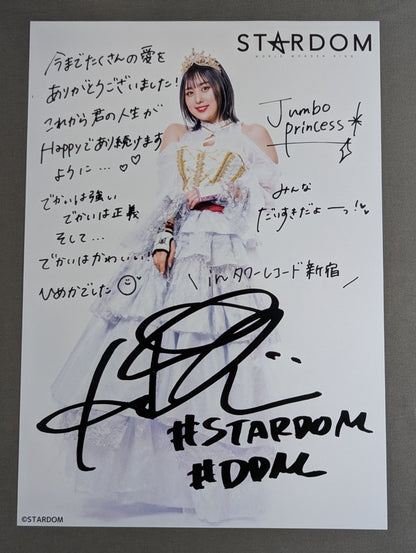 STARDOM
WORLD WONDER RING
今までたくさんの愛を
ありがとうございました!
これから君の人生が
Happyであり続けます
ように…♡♡
でかいは強い
でかいは正義
そして…
でかいはかわいい!!
ひめかでした
Jumbo
princess
みんな
だいすきだよーっ!♡
\inタワーレコード新宿/
#STARDOM
#DDM
©STARDOM